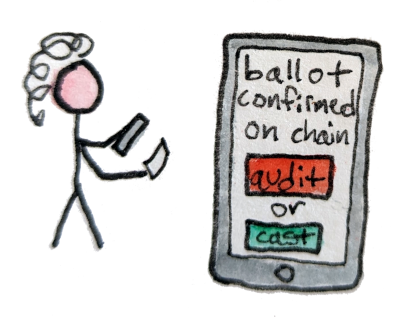 ballot
confirmed
on chain
audit
or
cast